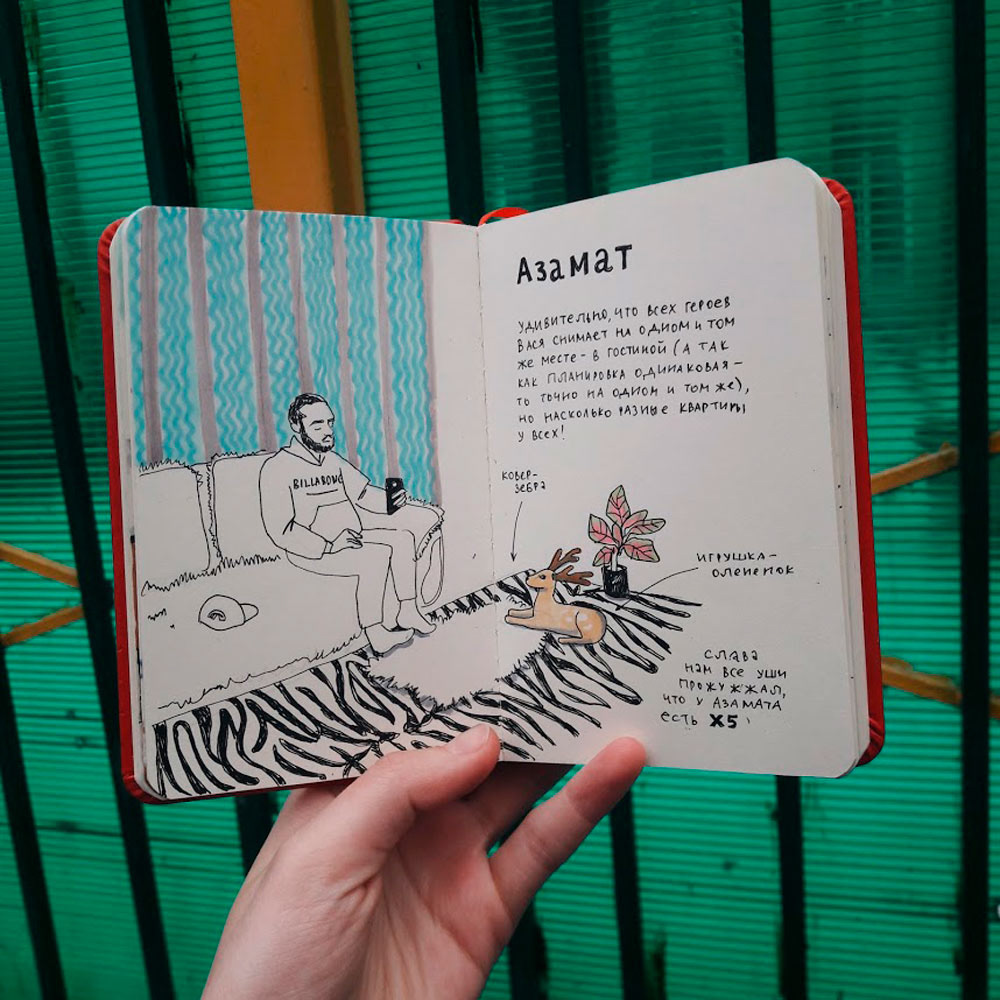 BILLABONG
Азамат
УДИВИТЕЛЬНО, ЧТО ВСЕХ ГЕРОЕВ
ВАСЯ СНИМАЕТ НА ОДНОМ И ТОМ
ЖЕ МЕСТЕ - В ГОСТИНОЙ (А ТАК
КАК ПЛАНИРОВКА ОДИНАКОВАЯ -
ТО ТОЧНО НА ОДНОМ И ТОМ ЖЕ),
НО НАСКОЛЬКО РАЗНЫЕ КВАРТИРЫ
У ВСЕХ!
КОВЕР-
ЗЕБРА
ИГРУШКА -
ОЛЕНЕНОК
СЛАВА
НАМ ВСЕ УШИ
ПРОЖУЖЖАЛ,
ЧТО У АЗАМАТА
ЕСТЬ X5